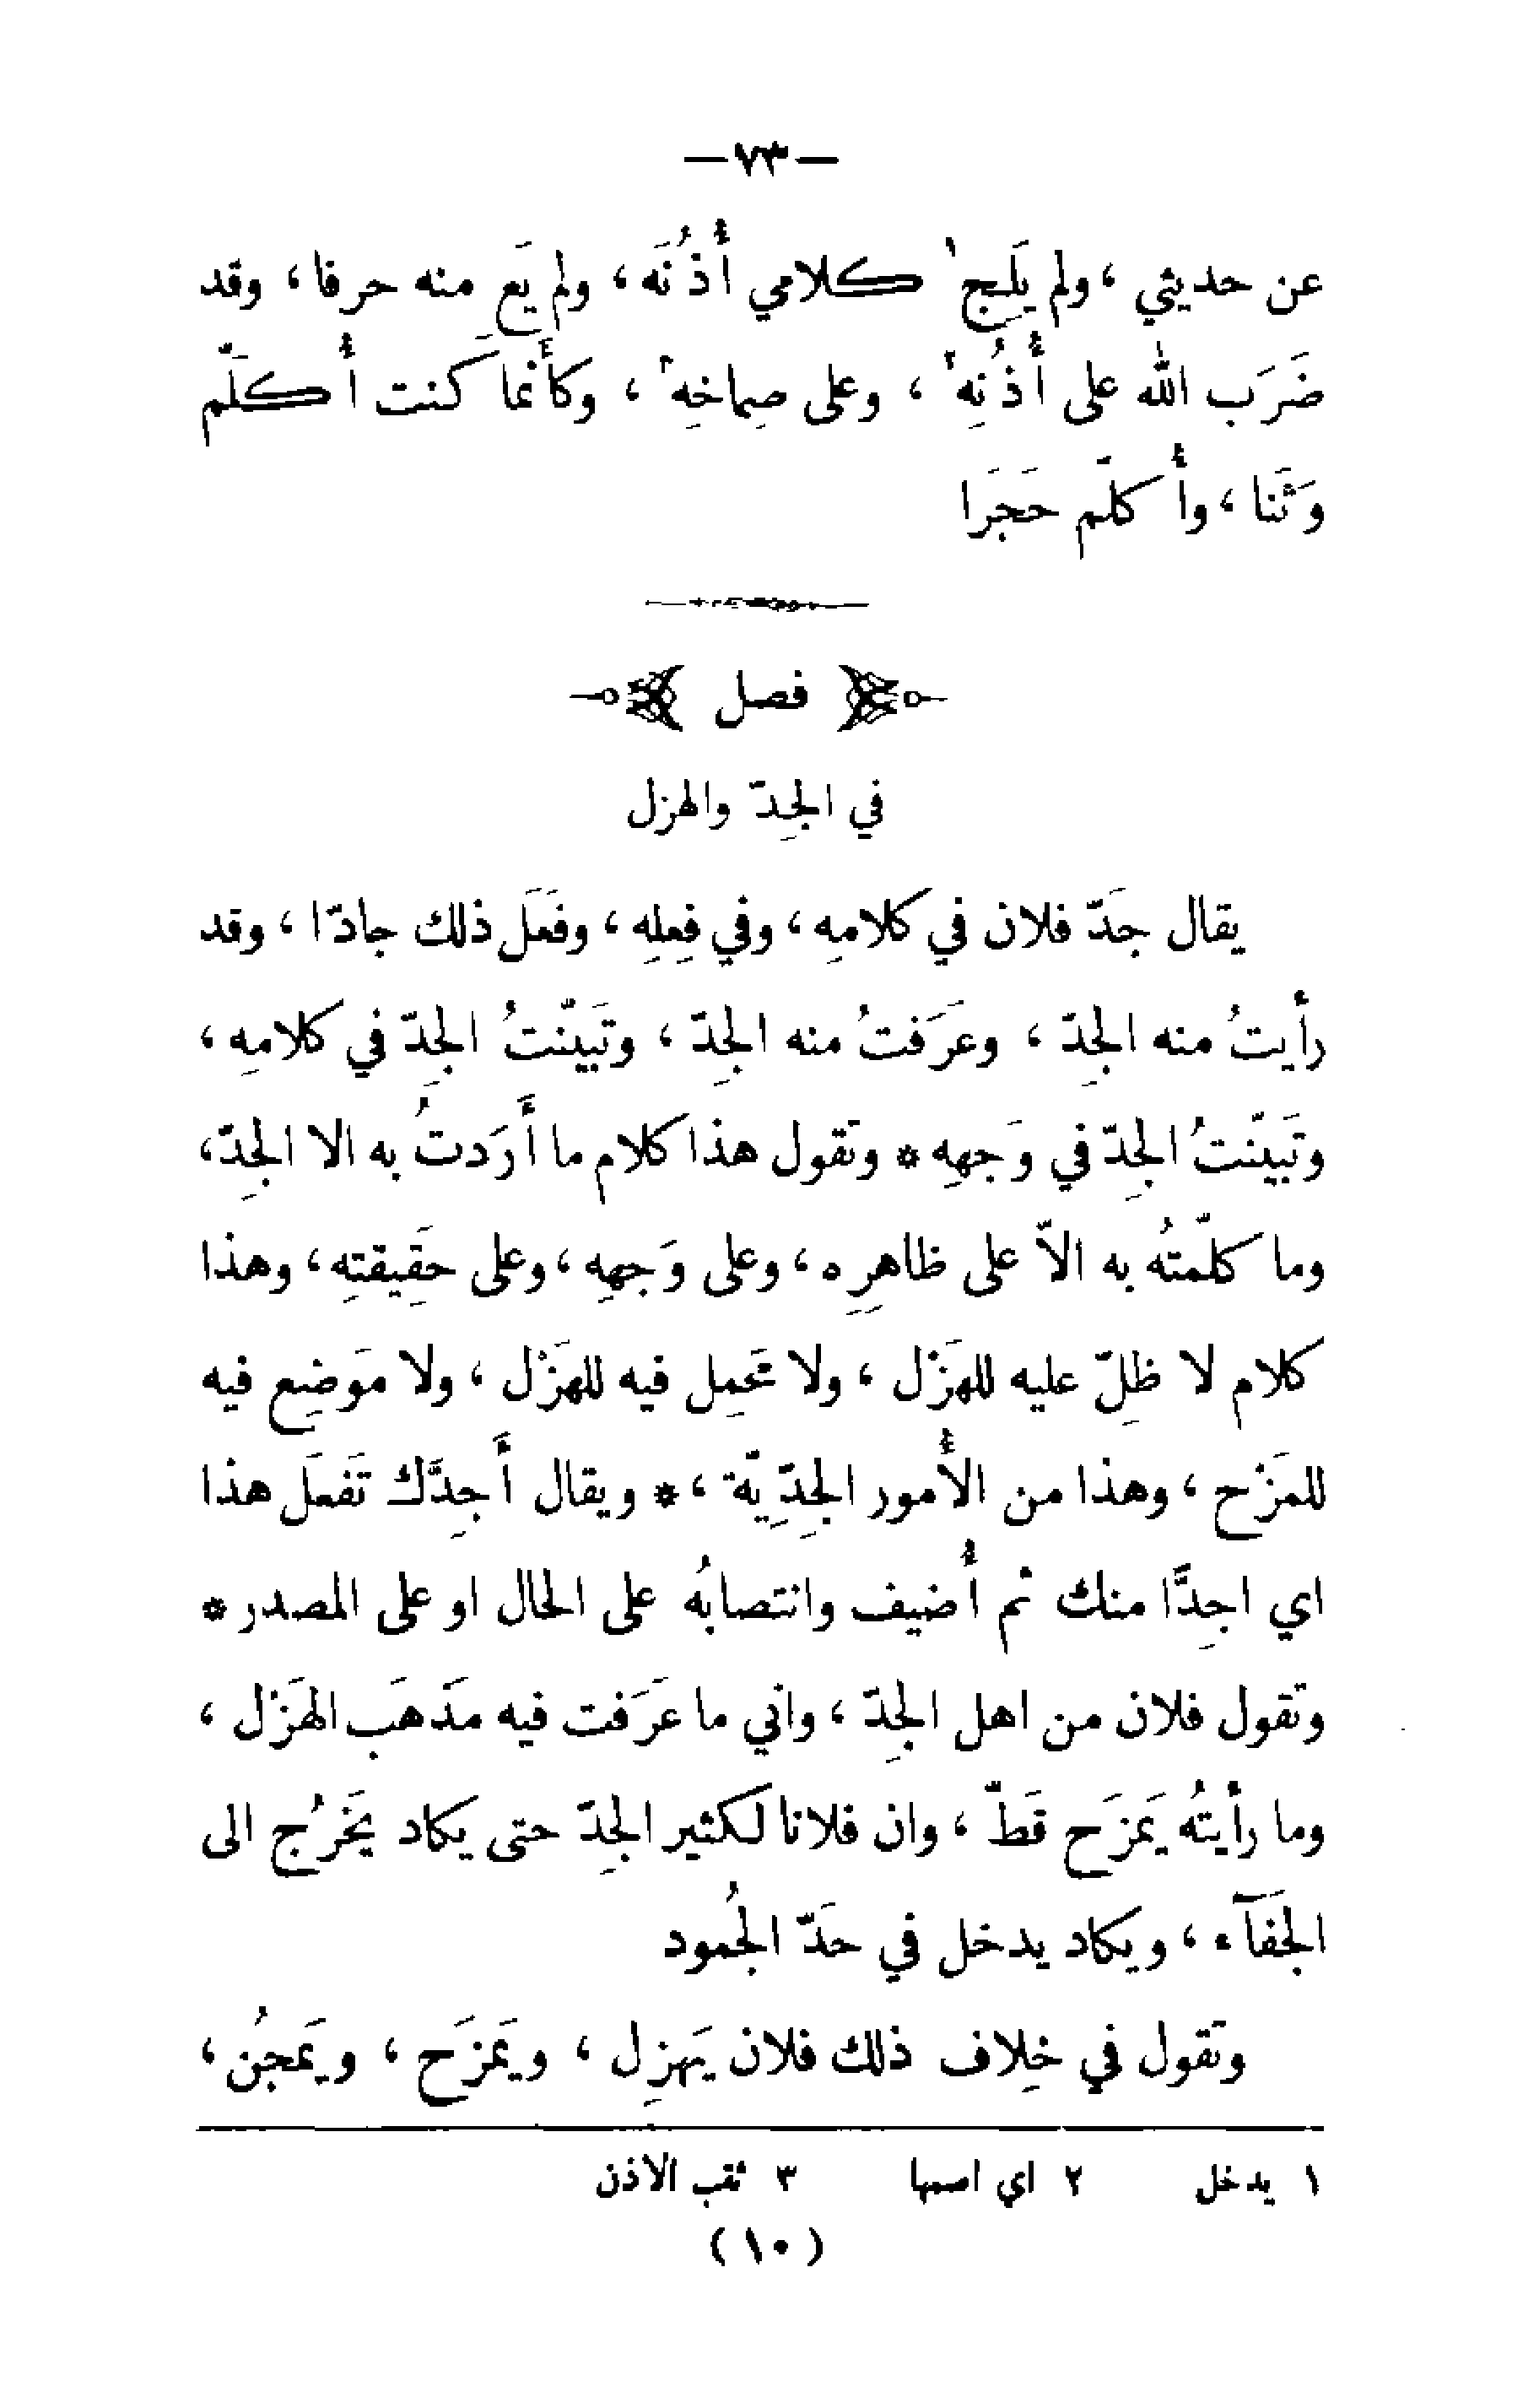 —٧٣—
عن حديثي ، ولم يَلِج١ كلامي أُذُنَه ، ولم يَعِ منه حرفا ، وقد
ضَرَب الله على أُذُنِه٢ ، وعلى صِماخِه٣ ، وكأَنما كنت أُكلّم
وَثَنا ، وأُكلّم حَجَرا
فصل
في الجِدّ والهزل
يقال جَدّ فلان في كلامِه ، وفي فِعلِه ، وفَعَل ذلك جادّا ، وقد
رأيتُ منه الجِدّ ، وعَرَفتُ منه الجِدّ ، وتَبيّنتُ الجِدّ في كلامِه ،
وتَبيّنتُ الجِدّ في وَجهِه * وتقول هذا كلام ما أَرَدتُ به الا الجِدّ،
وما كلّمتُه به الاّ على ظاهِرِه ، وعلى وَجهِه ، وعلى حَقِيقتِه ، وهذا
كلام لا ظِلّ عليه للهَزْل ، ولا مَحمِل فيه للهَزْل ، ولا مَوضِع فيه
للمَزْح ، وهذا من الأُمور الجِدّيّة ، * ويقال أَجِدَّك تَفعَل هذا
اي اجِدًّا منك ثم أُضيف وانتصابُه على الحال او على المصدر *
وتقول فلان من اهل الجِدّ ، واني ما عَرَفت فيه مَذهَب الهَزْل ،
وما رأيتُه يَمزَح قَطّ ، وان فلانا لكثير الجِدّ حتى يكاد يَخرُج الى
الجَفَآء ، ويكاد يدخل في حَدّ الجُمود
وتقول في خِلاف ذلك فلان يَهزِل ، ويَمزَح ، ويَمجُن ،
١ يدخل ٢ اي اصمها ٣ ثقب الاذن
(١٠)